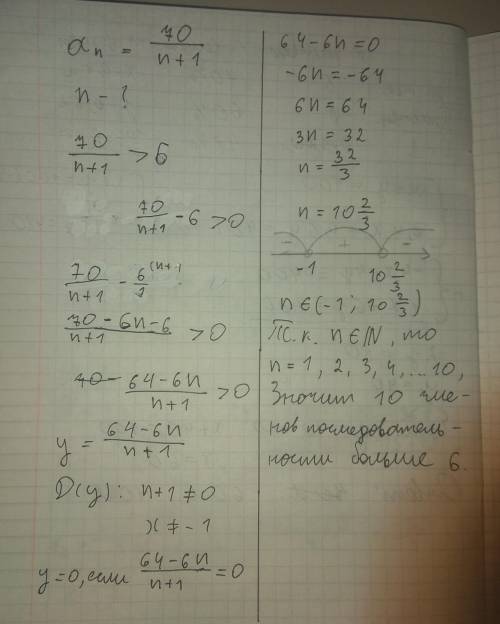 a_n = 70/(n+1)
n - ?
70/(n+1) > 6
70/(n+1) - 6 > 0
70/(n+1) - 6/1 ^(n+1
(70 - 6n - 6)/(n+1) > 0
(64-6n)/(n+1) > 0
y = (64-6n)/(n+1)
D(y): n+1 ≠ 0
x ≠ -1
y=0, если (64-6n)/(n+1) = 0
64-6n=0
-6n=-64
6n=64
3n=32
n = 32/3
n = 10 2/3
- + -
-1 10 2/3
n ∈ (-1; 10 2/3)
Т.к. n∈N, то
n=1, 2, 3, 4, ...10,
Значит 10 чле-
нов последователь-
ности больше 6.